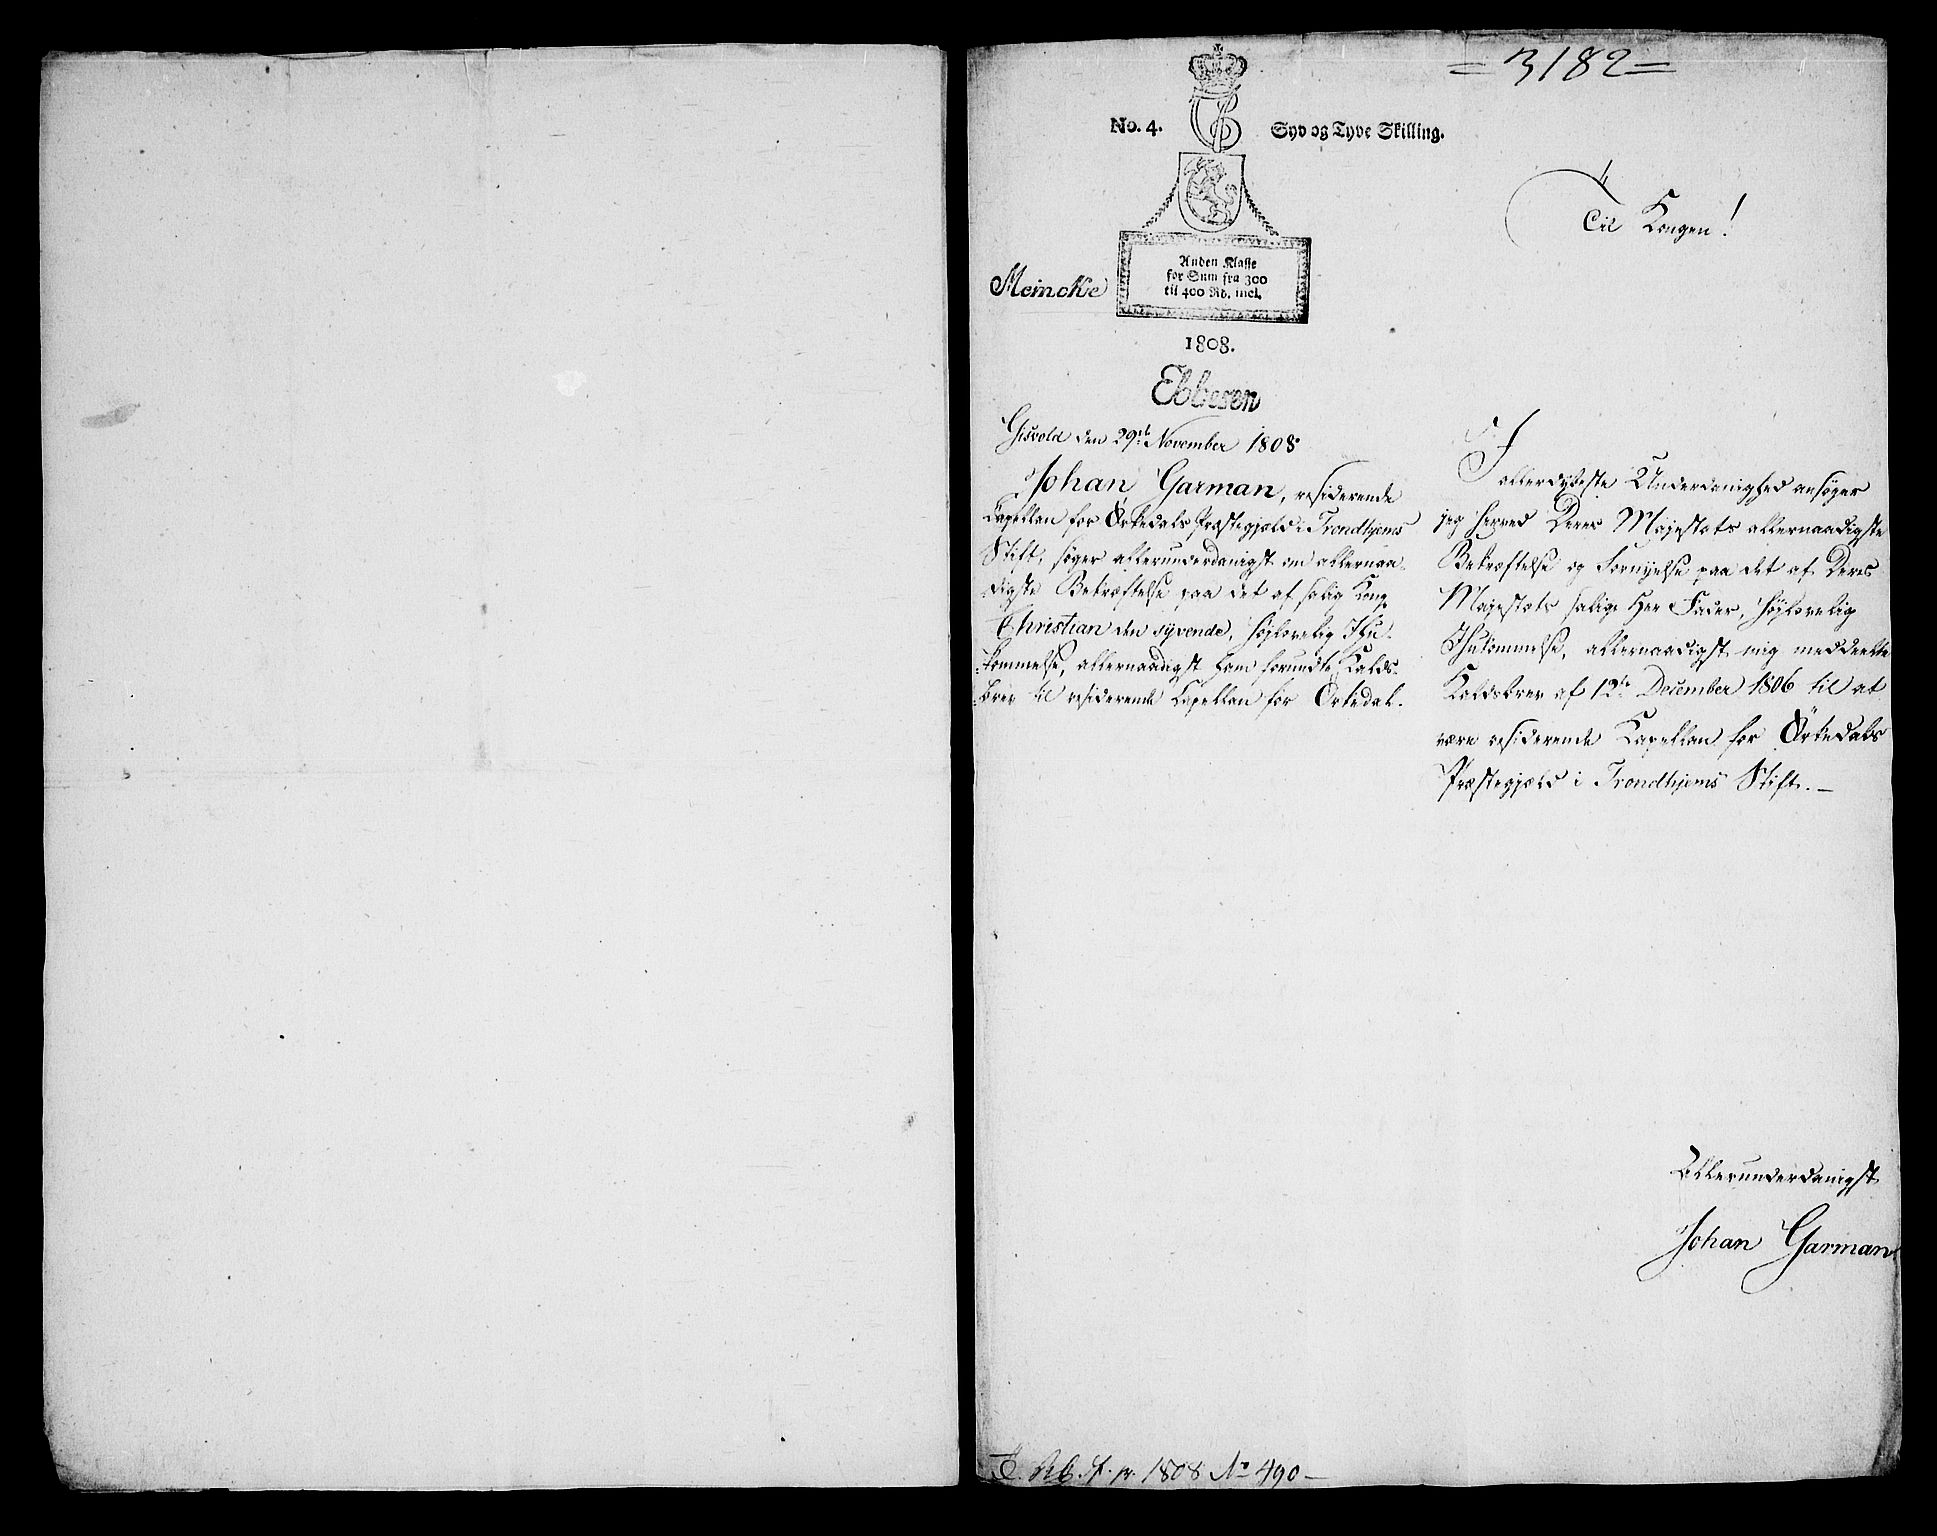 = 3182 =
No. 4. Syv og Tyve Skilling.
Til Kongen!
Anden Klasse
for Sum fra 300
til 400 Rd. incl.
Meincke
1808.
Ebbesen
Gisvold den 29de November 1808.
Johan Garman, residerende
Capellan for Örkedals Præstegjeld i Trondhjems
Stift, søger allerunderdanigst om allernaa-
digste Bekræftelse paa det af salig Kong
Christian den syvende, høylovelig Ihu-
kommelse, allernaadigst ham forundte Kalds-
brev til residerende Capellan for Örkedal.
I allerdybeste Underdanighed ansøger
jeg herved Deres Majestæts allernaadigste
Bekræftelse og Fornyelse paa det af Deres
Majestæts salige Herr Fader, høylovelig
Ihukommelse, allernaadigst mig meddeelte
Kaldsbrev af 12te December 1806 til at
være residerende Kapellan for Örkedals
Præstegjeld i Trondhjems Stift. —
Allerunderdanigst
Johan Garman
1808 No 490 —